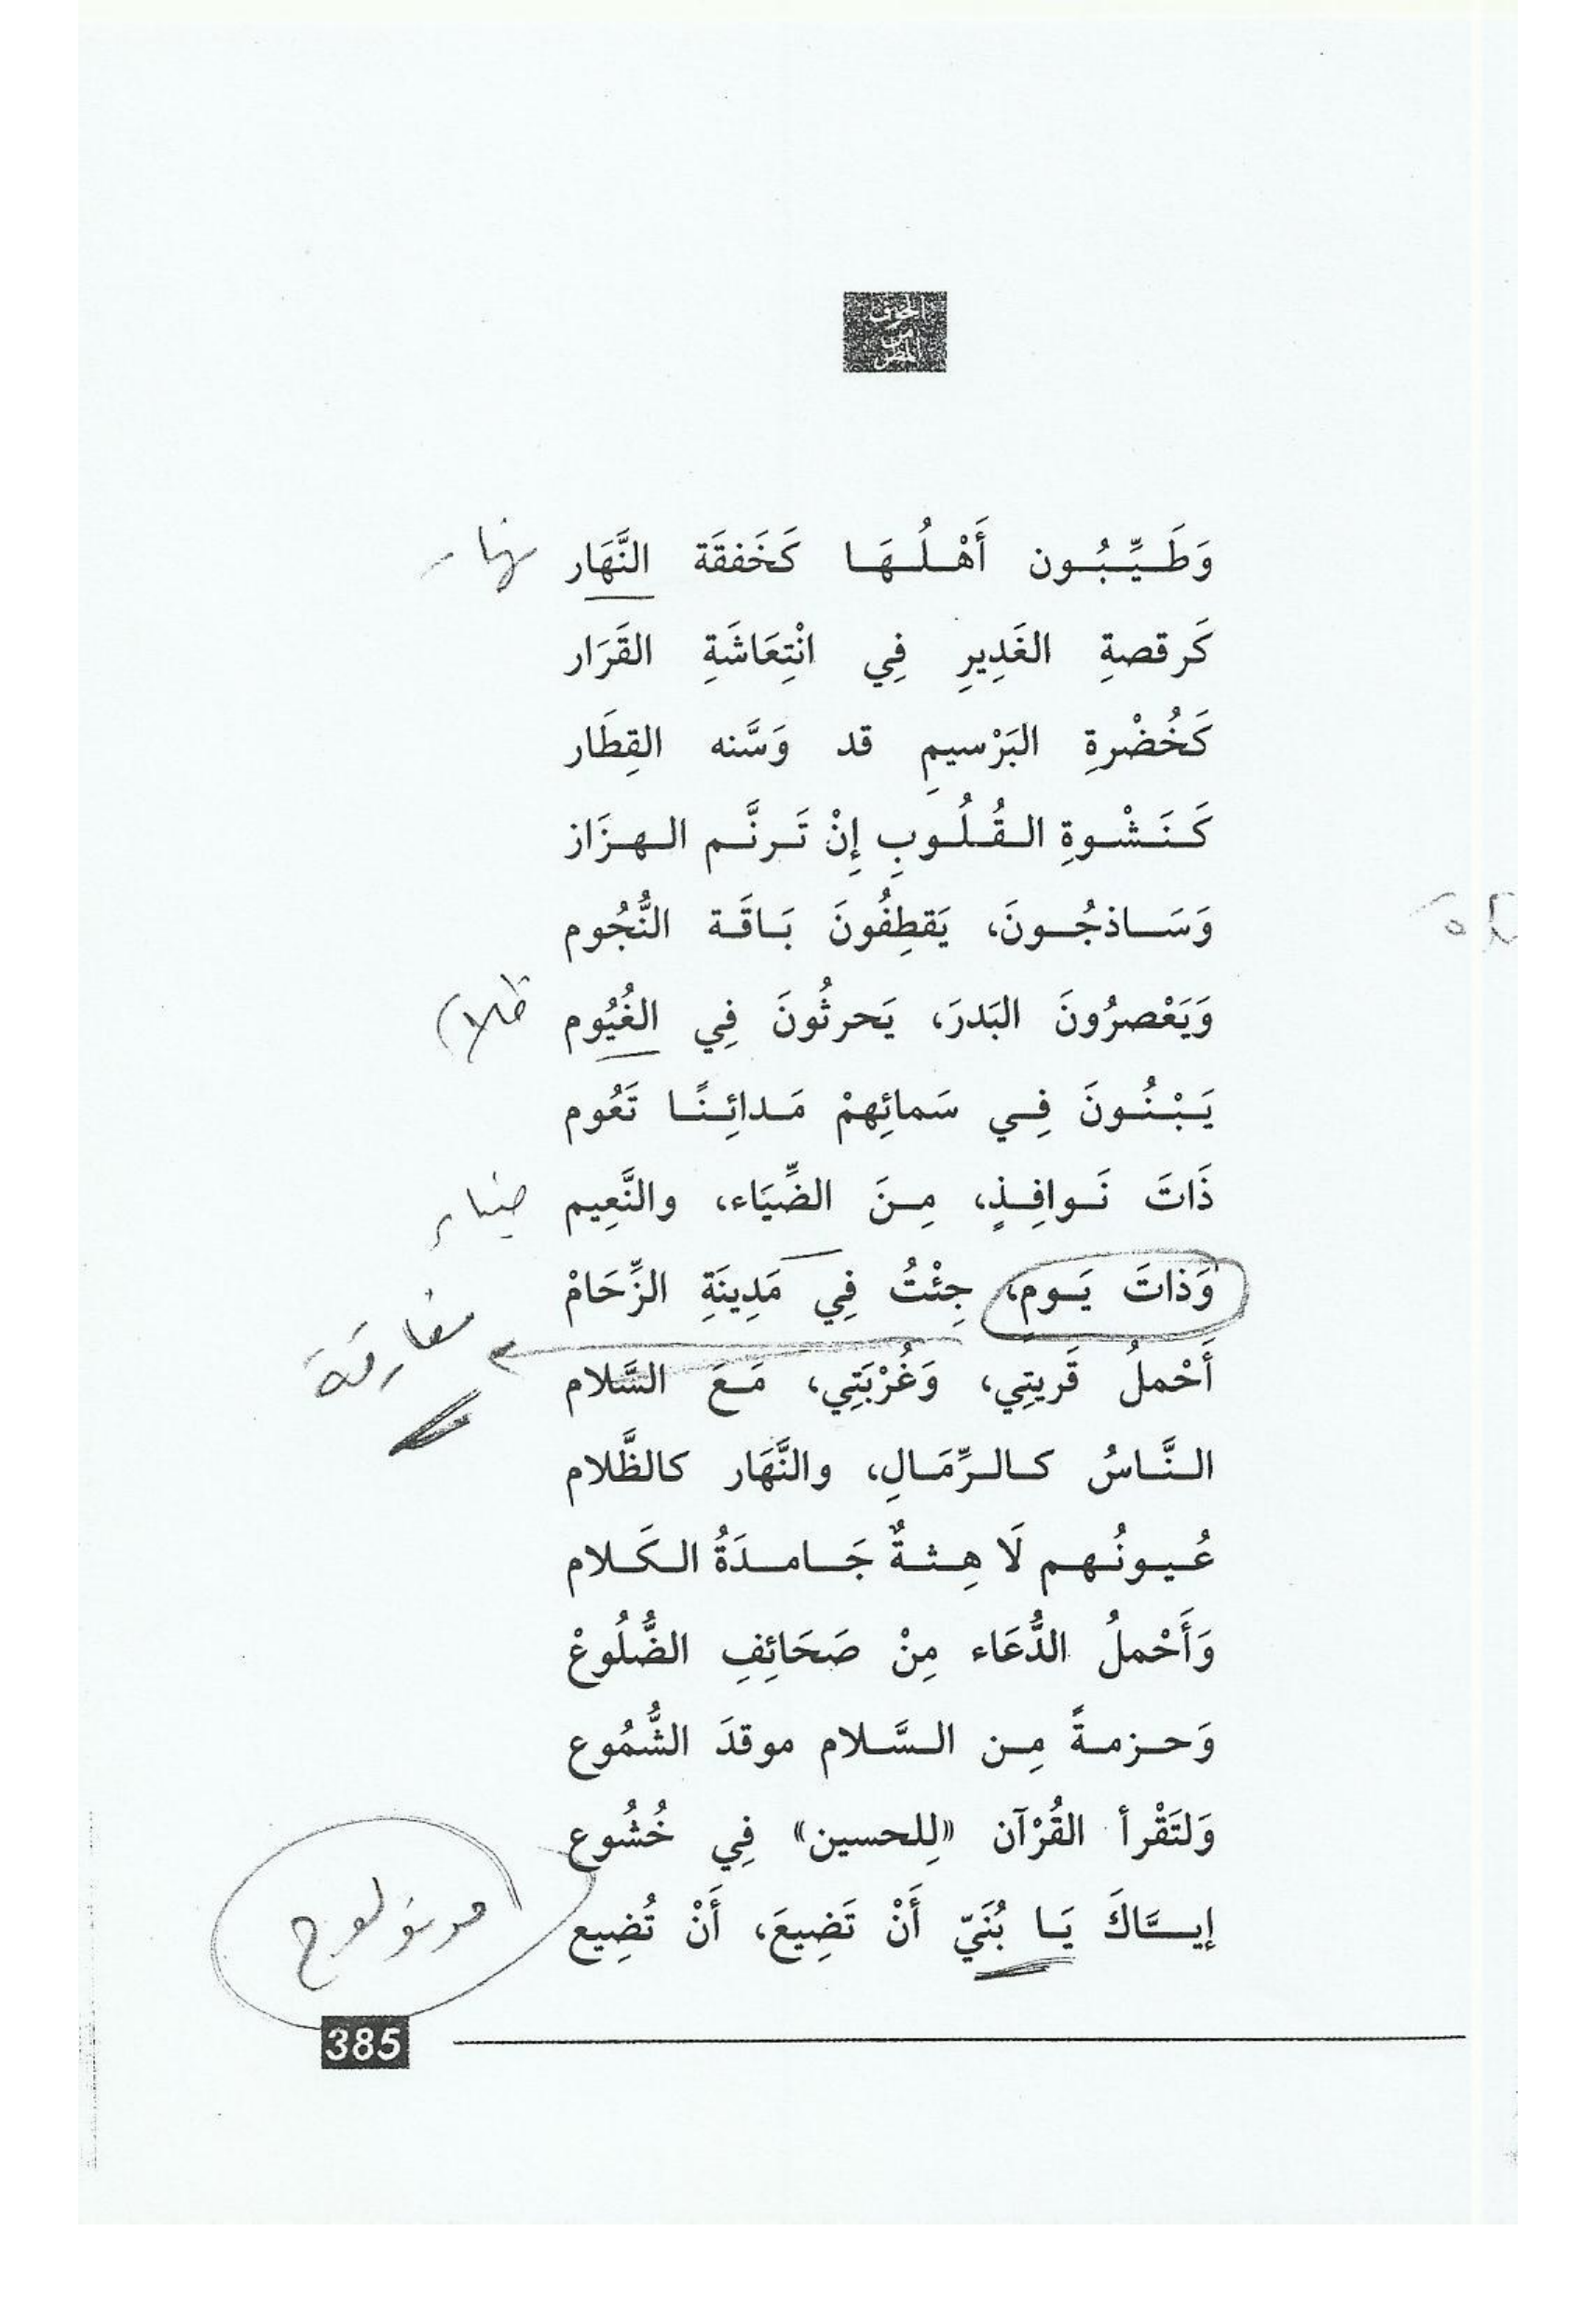 الخوف
من
المطر
وَطَـيِّـبُـون أَهْـلُـهَـا كَخَفقَة النَّهَار
نهار
كَرقصةِ الغَدِيرِ فِي انْتِعَاشَةِ القَرَار
كَخُضْرةِ البَرْسيمِ قد وَسَّنه القِطَار
كَـنَـشْـوةِ الـقُـلُـوبِ إِنْ تَـرنَّـم الـهـزَاز
وَسَـــاذجُـــونَ، يَقطِفُونَ بَـاقَـة النُّجُوم
وَيَعْصرُونَ البَدرَ، يَحرثُونَ فِي الغُيُوم
ظلام
يَـبْـنُـونَ فِـي سَمائِهمْ مَـدائِـنًـا تَعُوم
ذَاتَ نَـوافِـذٍ، مِـنَ الضِّيَاء، والنَّعِيم
ضياء
وَذاتَ يَـومٍ، جِئْتُ فِي مَدِينَةِ الزِّحَامْ
مفارقة
أَحْملُ قَريتِي، وَغُرْبَتِي، مَـعَ السَّلام
الـنَّـاسُ كـالـرِّمَـالِ، والنَّهَار كالظَّلام
عُـيـونُـهـم لَا هِـثـةٌ جَـامـدَةُ الـكَـلام
وَأَحْملُ الدُّعَاء مِنْ صَحَائِفِ الضُّلُوعْ
وَحـزمـةً مِـن الـسَّـلام موقدَ الشُّمُوع
وَلتَقْرأ القُرْآن «لِلحسين» فِي خُشُوع
إيـــَّاكَ يَـا بُنَيّ أَنْ تَضِيعَ، أَنْ تُضِيع
مونولوج
385